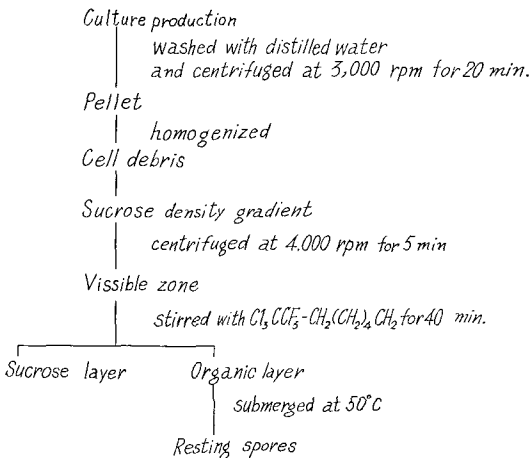 Culture production
washed with distilled water
and centrifuged at 3,000 rpm for 20 min.
Pellet
homogenized
Cell debris
Sucrose density gradient
centrifuged at 4.000 rpm for 5 min
Vissible zone
stirred with Cl₃CCF₃-CH₂(CH₂)₄CH₂ for 40 min.
Sucrose layer Organic layer
submerged at 50°C
Resting spores